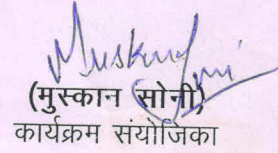 Muskan Soni
(मुस्कान सोनी)
कार्यक्रम संयोजिका